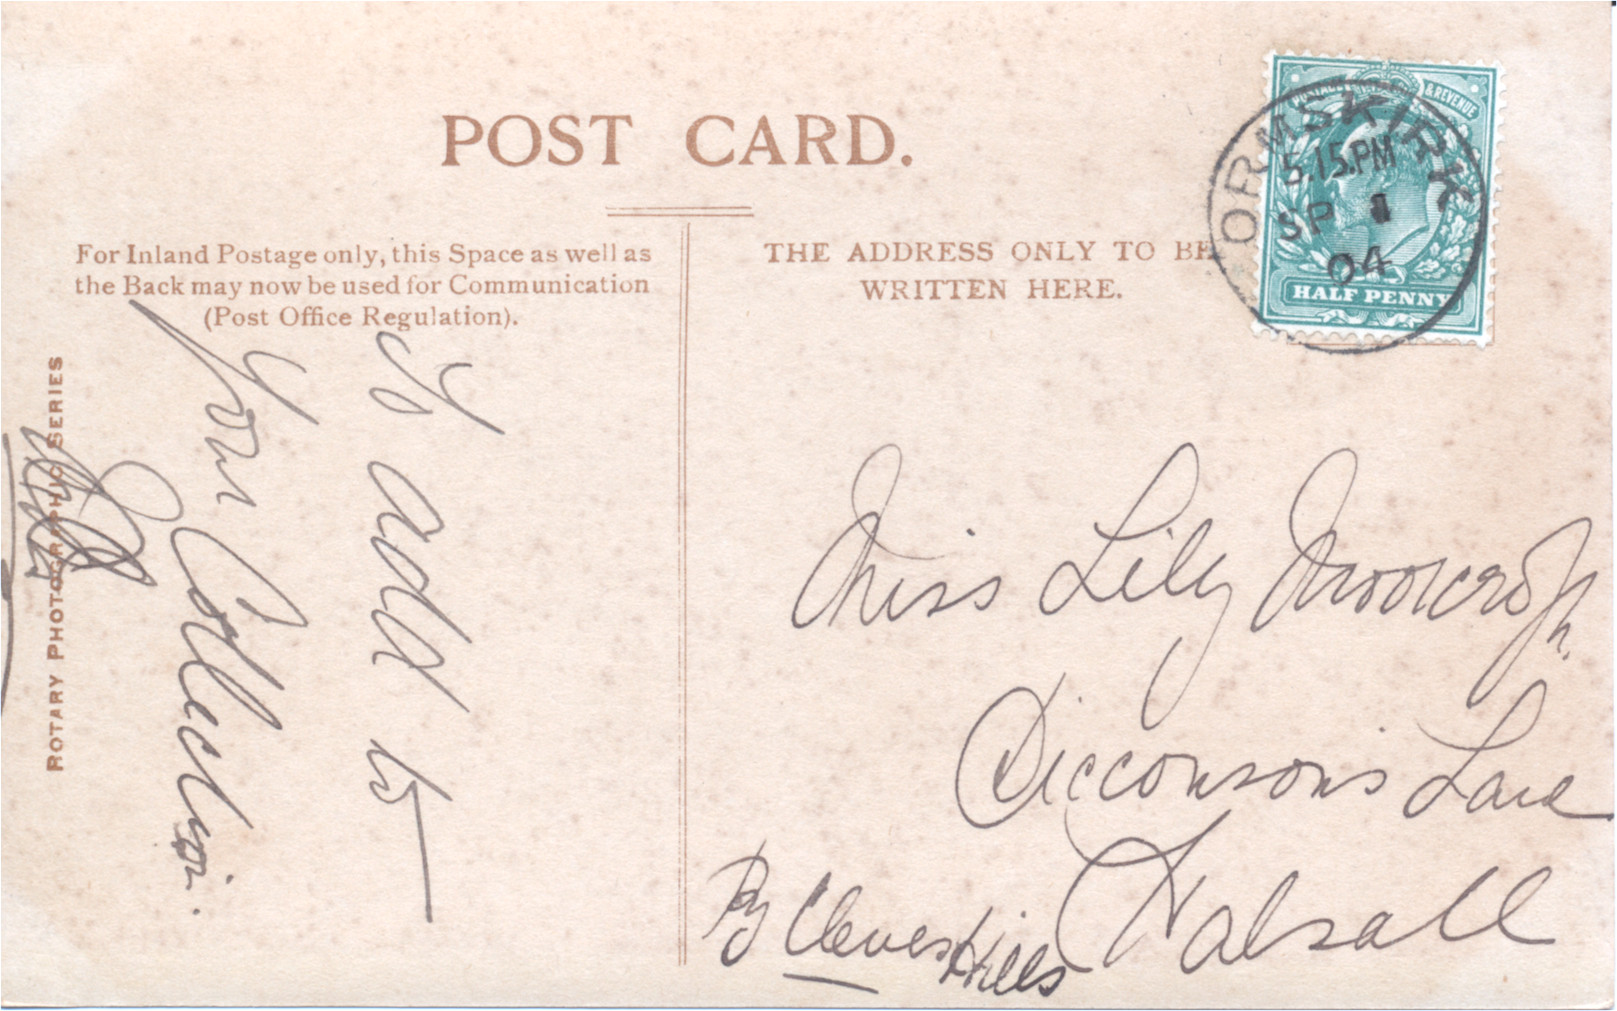 POST CARD.
For Inland Postage only, this Space as well as
the Back may now be used for Communication
(Post Office Regulation).
THE ADDRESS ONLY TO BE
WRITTEN HERE.
POSTAGE & REVENUE
HALF PENNY
ORMSKIRK
5.15.PM
SP 1
04
To add to
Your Collection.
ROTARY PHOTOGRAPHIC SERIES
Miss Lily
Dicconsons Lane
Halsall
By
Hills